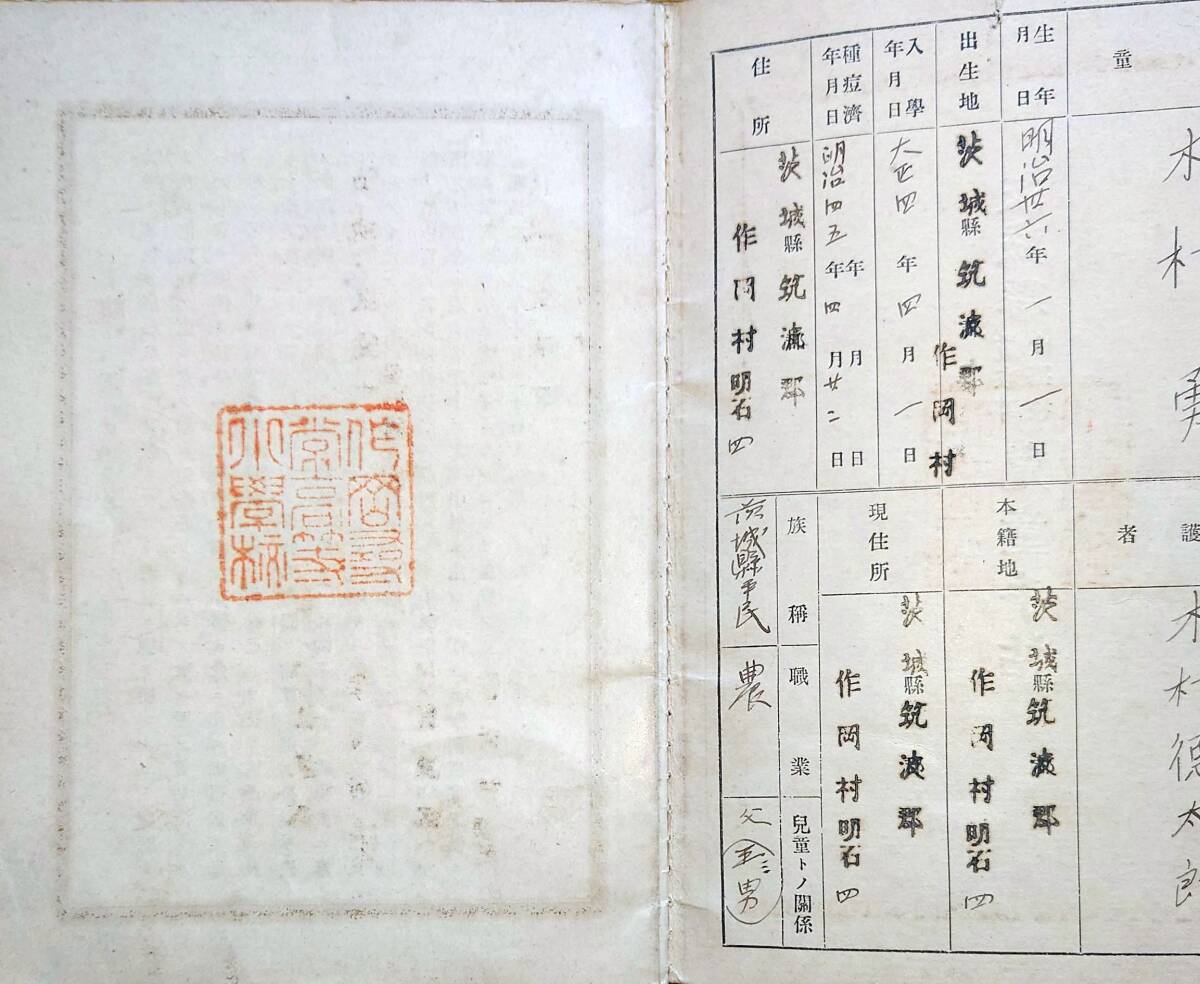 童
木村勇
生年月日
明治卅六年一月一日
出生地
茨城縣筑波郡
作岡村
入學年月日
大正四年四月一日
種痘濟年月日
明治四五年四月廿二日
年月日
住所
茨城縣筑波郡
作岡村明石四
護者
木村德太郎
本籍地
茨城縣筑波郡
作岡村明石四
現住所
茨城縣筑波郡
作岡村明石四
族稱
茨城縣平民
職業
農
兒童トノ關係
父
五男
作岡尋
常高等
小學校